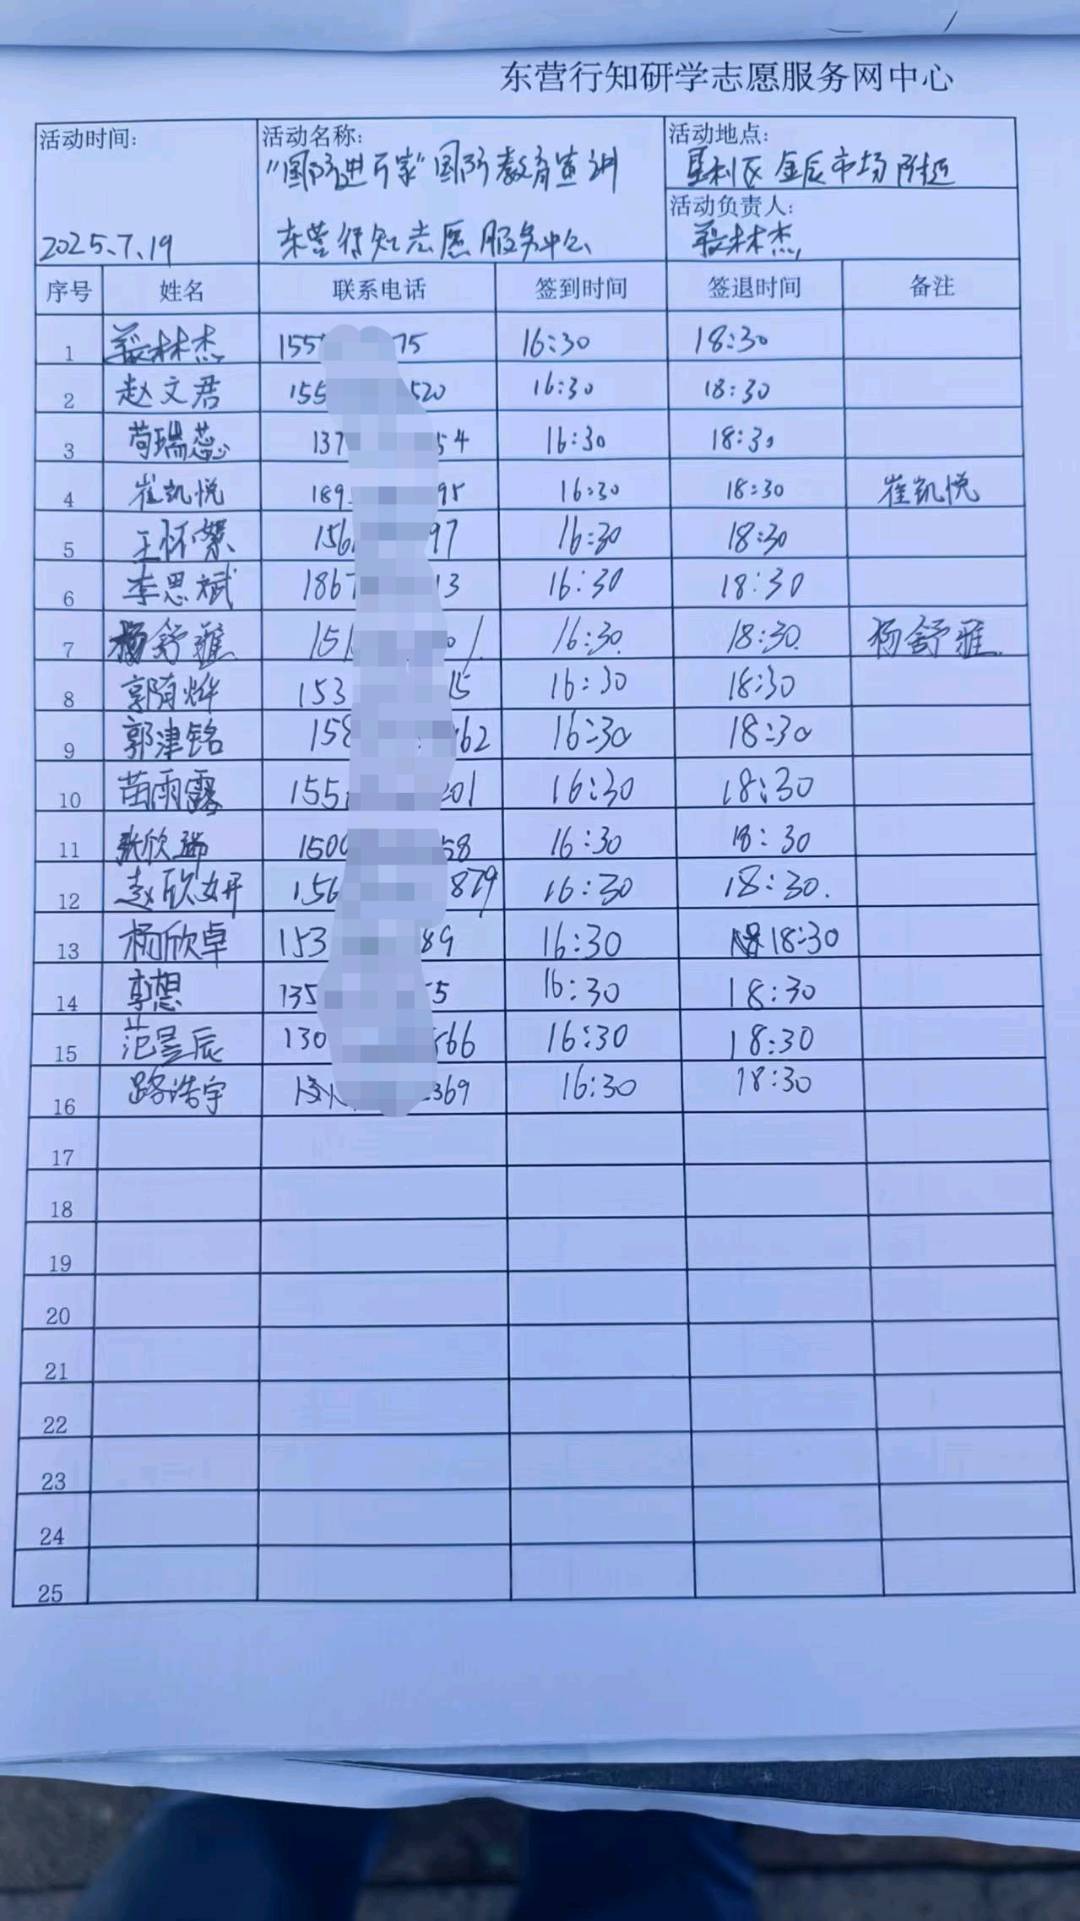 东营行知研学志愿服务网中心
活动时间: 活动名称: 活动地点:
"国防进万家"国防教育宣讲 垦利区金辰市场附近
活动负责人:
2025.7.19 东营行知志愿服务中心 林杰
序号 姓名 联系电话 签到时间 签退时间 备注
1 林杰 155 75 16:30 18:30
2 赵文君 155 520 16:30 18:30
3 苟瑞蕊 137 54 16:30 18:30
4 崔凯悦 189 95 16:30 18:30 崔凯悦
5 王怀 156 97 16:30 18:30
6 李思斌 186 13 16:30 18:30
7 杨舒雅 151 01 16:30 18:30 杨舒雅
8 郭 153 15 16:30 18:30
9 郭津铭 158 62 16:30 18:30
10 苗雨露 155 201 16:30 18:30
11 张欣瑞 150 58 16:30 18:30
12 赵欣妍 156 879 16:30 18:30.
13 杨欣卓 153 89 16:30 18:30
14 李想 135 5 16:30 18:30
15 范昱辰 130 566 16:30 18:30
16 路浩宇 13 369 16:30 18:30
17
18
19
20
21
22
23
24
25